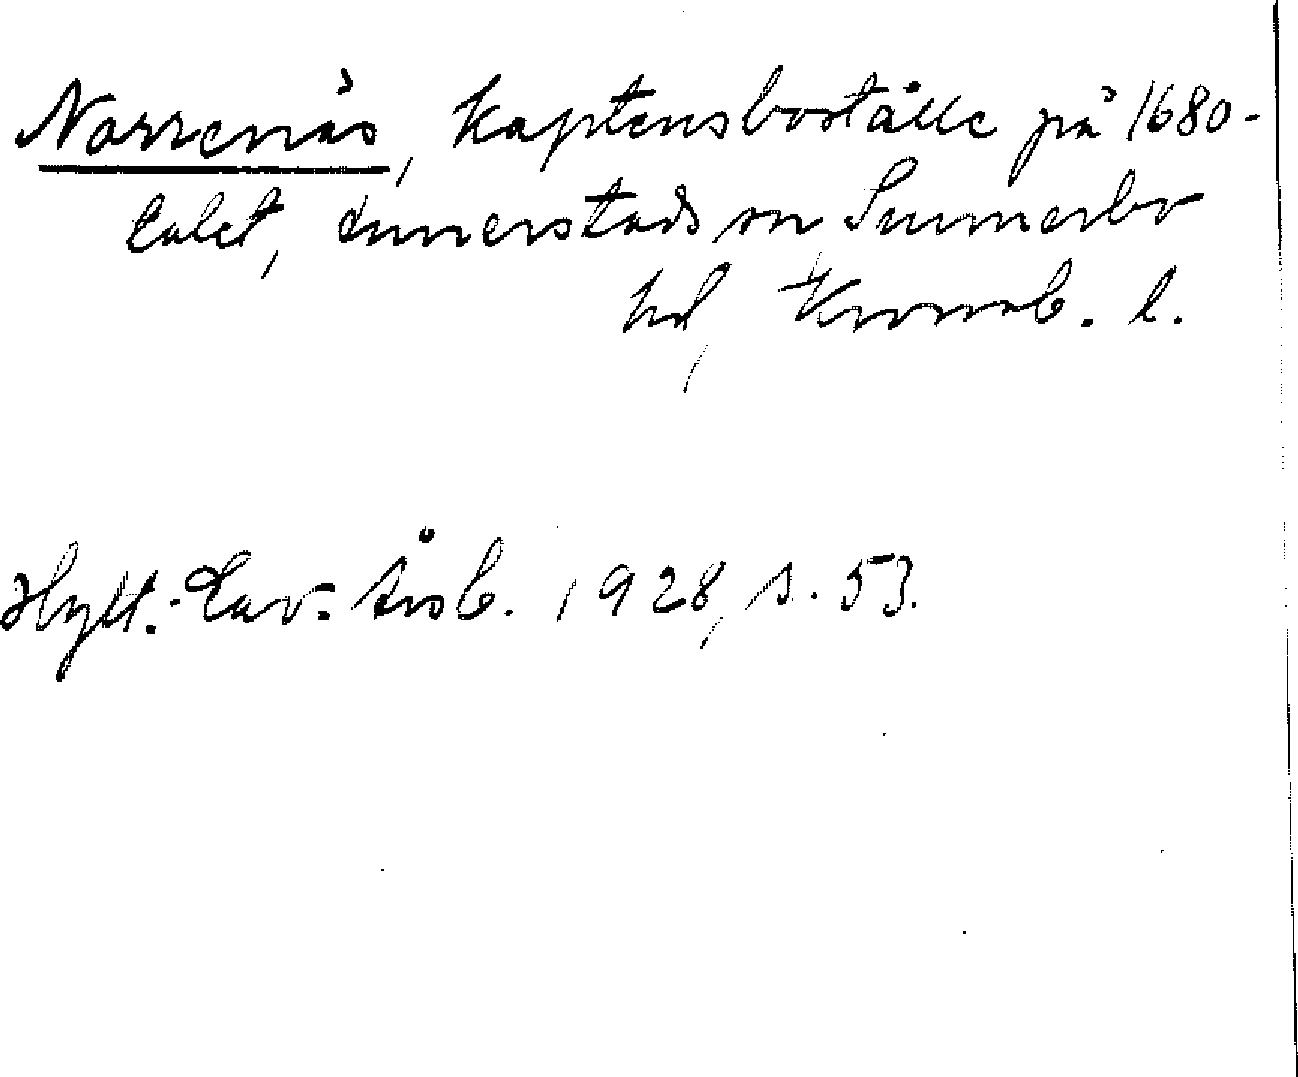 Norrenäs, kaptensboställe på 1680-
talet, Annerstads sn, Sunnerbo
hd, Kronob. l.
Hylt.-Cav:s årsb. 1928, s. 53.